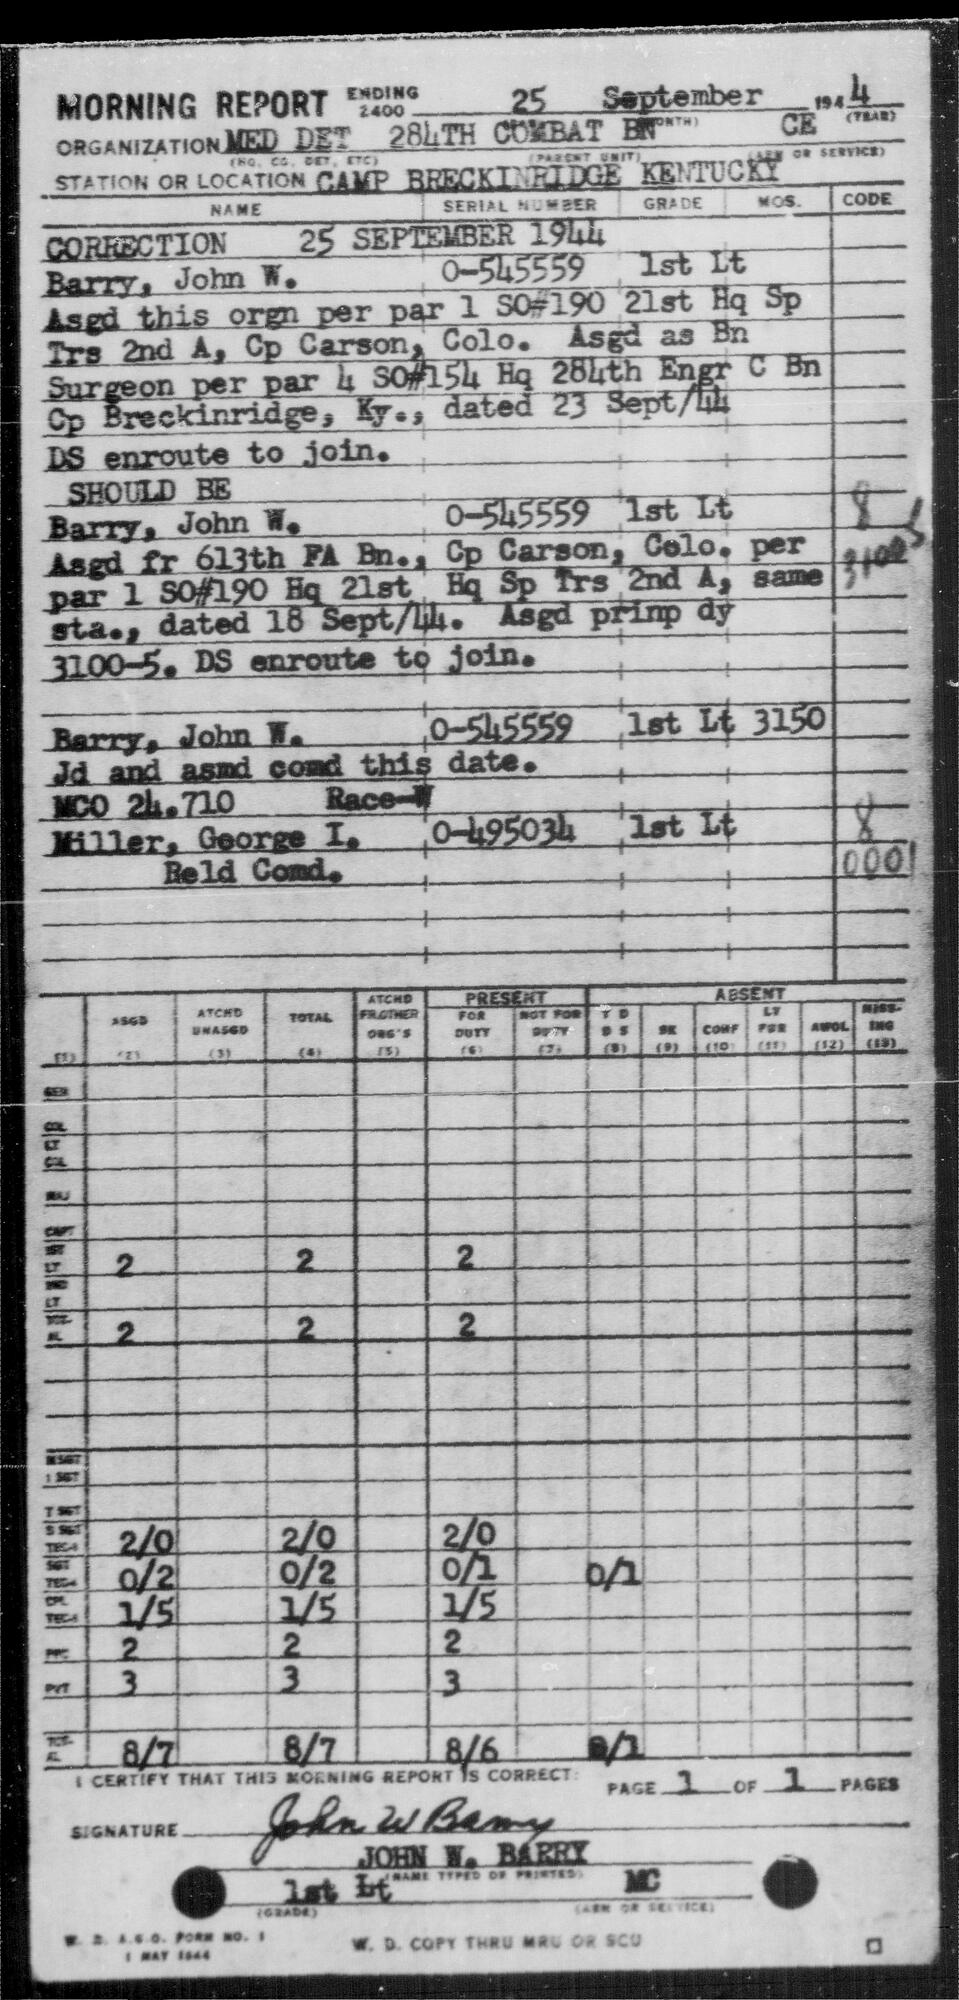 MORNING REPORT ENDING 2400 25 September 1944
(MONTH) (YEAR)
ORGANIZATION MED DET 284TH COMBAT BN CE
(HQ, CO, DET, ETC) (PARENT UNIT) (ARM OR SERVICE)
STATION OR LOCATION CAMP BRECKINRIDGE KENTUCKY
NAME SERIAL NUMBER GRADE MOS. CODE
CORRECTION 25 SEPTEMBER 1944
Barry, John W. O-545559 1st Lt
Asgd this orgn per par 1 SO#190 21st Hq Sp
Trs 2nd A, Cp Carson, Colo. Asgd as Bn
Surgeon per par 4 SO#154 Hq 284th Engr C Bn
Cp Breckinridge, Ky., dated 23 Sept/44
DS enroute to join.
SHOULD BE
Barry, John W. O-545559 1st Lt 8
Asgd fr 613th FA Bn., Cp Carson, Colo. per
par 1 SO#190 Hq 21st Hq Sp Trs 2nd A, same
sta., dated 18 Sept/44. Asgd prinp dy
3100-5. DS enroute to join.
Barry, John W. O-545559 1st Lt 3150
Jd and asmd comd this date.
MCO 24.710 Race-W
Miller, George I. O-495034 1st Lt 8
Reld Comd. 0001
ATCHD PRESENT ABSENT
ASGD ATCHD UNASGD TOTAL FR OTHER ORG'S FOR DUTY NOT FOR DUTY T D D S SK CONF LT FUR AWOL MISSING
(1) (2) (3) (4) (5) (6) (7) (8) (9) (10) (11) (12) (13)
GEN
COL
LT COL
MAJ
CAPT
1ST LT 2 2 2
2ND LT
TOTAL 2 2 2
M SGT
1 SGT
T SGT
S SGT TEC-3 2/0 2/0 2/0
SGT TEC-4 0/2 0/2 0/1 0/1
CPL TEC-5 1/5 1/5 1/5
PFC 2 2 2
PVT 3 3 3
TOTAL 8/7 8/7 8/6 0/1
I CERTIFY THAT THIS MORNING REPORT IS CORRECT: PAGE 1 OF 1 PAGES
SIGNATURE John W Barry
JOHN W. BARRY
(NAME TYPED OR PRINTED)
1st Lt MC
(GRADE) (ARM OR SERVICE)
W. D. A.G.O. FORM NO. 1
1 MAY 1944
W. D. COPY THRU MRU OR SCU